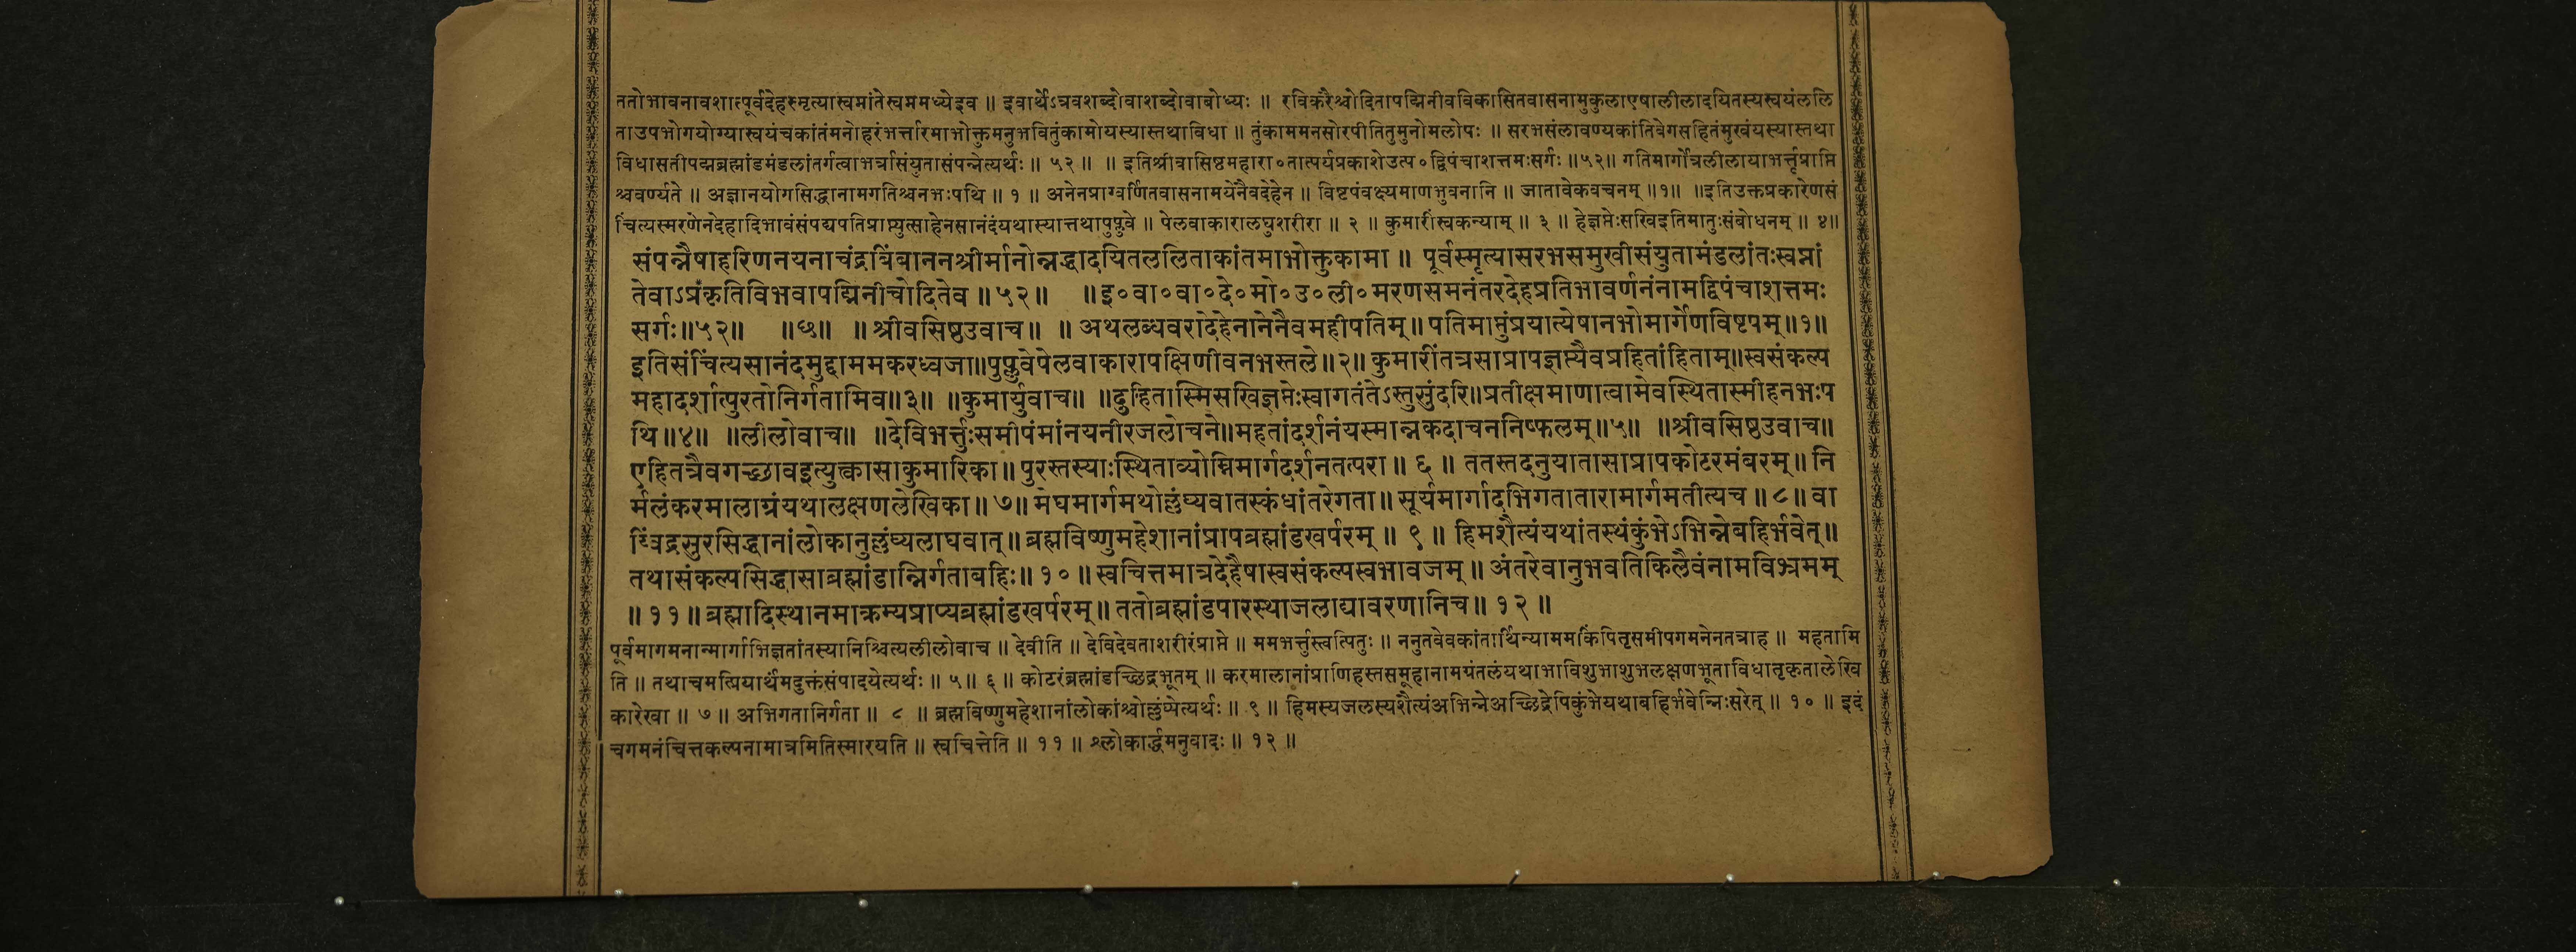 ततोभावनावशात्पूर्वदेहस्मृत्यास्वप्रमांतेस्वप्रमध्येइव ॥ इवार्थेऽत्रवशब्दोवाशब्दोवाबोध्यः ॥ रविकरैश्चोदितापद्मिनीवविकासितवासनामुकुलाएषालीलादयितस्यस्वयंललि
ताउपभोगयोग्यास्वयंचकांतंमनोहरंभर्त्तारमाभोक्तुमनुभवितुंकामोयस्यास्तथाविधा ॥ तुंकाममनसोरपीतितुमुनोमलोपः ॥ सरभसंलावण्यकांतिवेगसहितंमुखंयस्यास्तथा
विधासतीपद्मब्रह्मांडमंडलांतर्गत्वाभर्त्रासंयुतासंपन्नेत्यर्थः ॥ ५२ ॥ ॥ इतिश्रीवासिष्ठमहारा॰तात्पर्यप्रकाशेउत्प॰द्विपंचाशत्तमःसर्गः ॥५२॥ गतिमार्गोत्रलीलायाभर्त्तृप्राप्ति
श्चवर्ण्यते ॥ अज्ञानयोगसिद्धानामगतिश्चनभःपथि ॥ १ ॥ अनेनप्राग्वर्णितवासनामयेनैवदेहेन ॥ विष्टपंवक्ष्यमाणभुवनानि ॥ जातावेकवचनम् ॥१॥ ॥इतिउक्तप्रकारेणसं
चिंत्यस्मरणेनदेहादिभावंसंपद्यपतिप्राप्त्युत्साहेनसानंदंयथास्यात्तथापुप्लुवे ॥ पेलवाकारालघुशरीरा ॥ २ ॥ कुमारींस्वकन्याम् ॥ ३ ॥ हेज्ञप्तेःसखिइतिमातुःसंबोधनम् ॥ ४॥
संपन्नैषाहरिणनयनाचंद्रबिंबाननश्रीर्मानोन्नद्धादयितललिताकांतमाभोक्तुकामा ॥ पूर्वस्मृत्यासरभसमुखीसंयुतामंडलांतःस्वप्नां
तेवाऽप्रंकृतिविभवापद्मिनीचोदितेव ॥ ५२ ॥ ॥ इ॰वा॰वा॰दे॰मो॰उ॰ली॰मरणसमनंतरदेहप्रतिभावर्णनंनामद्विपंचाशत्तमः
सर्गः॥५२॥ ॥छ॥ ॥ श्रीवसिष्ठउवाच॥ ॥ अथलब्धवरादेहेनानेनैवमहीपतिम् ॥ पतिमाप्तुंप्रयात्येषानभोमार्गेणविष्टपम् ॥१॥
इतिसंचिंत्यसानंदमुद्दाममकरध्वजा॥पुप्लुवेपेलवाकारापक्षिणीवनभस्तले॥२॥ कुमारींतत्रसाप्रापज्ञप्त्यैवप्रहितांहिताम्॥स्वसंकल्प
महादर्शात्पुरतोनिर्गतामिव॥३॥ ॥कुमार्युवाच॥ ॥दुहितास्मिसखिज्ञप्तेःस्वागतंतेऽस्तुसुंदरि॥प्रतीक्षमाणात्वामेवस्थितास्मीहनभःप
थि॥४॥ ॥लीलोवाच॥ ॥देविभर्त्तुःसमीपंमांनयनीरजलोचने॥महतांदर्शनंयस्मान्नकदाचननिष्फलम्॥५॥ ॥श्रीवसिष्ठउवाच॥
एहितत्रैवगच्छावइत्युक्त्वासाकुमारिका॥ पुरस्तस्याःस्थिताव्योम्निमार्गदर्शनतत्परा॥ ६ ॥ ततस्तदनुयातासाप्रापकोटरमंबरम्॥ नि
र्मलंकरमालाग्रंयथालक्षणलेखिका॥ ७॥ मेघमार्गमथोल्लंघ्यवातस्कंधांतरेगता॥ सूर्यमार्गादभिगतातारामार्गमतीत्यच ॥ ८॥ वा
य्विंद्रसुरसिद्धानांलोकानुल्लंघ्यलाघवात्॥ ब्रह्मविष्णुमहेशानांप्रापब्रह्मांडखर्परम् ॥ ९ ॥ हिमशैत्यंयथांतस्थंकुंभेऽभिन्नेबहिर्भवेत्॥
तथासंकल्पसिद्धासाब्रह्मांडान्निर्गताबहिः॥ १० ॥ स्वचित्तमात्रदेहैषास्वसंकल्पस्वभावजम् ॥ अंतरेवानुभवतिकिलैवंनामविभ्रमम्
॥ ११ ॥ ब्रह्मादिस्थानमाक्रम्यप्राप्यब्रह्मांडखर्परम् ॥ ततोब्रह्मांडपारस्थाजलाद्यावरणानिच ॥ १२ ॥
पूर्वमागमनान्मार्गाभिज्ञतांतस्यानिश्चित्यलीलोवाच ॥ देवीति ॥ देविदेवताशरीरंप्राप्ते ॥ ममभर्त्तुस्त्वत्पितुः ॥ ननुतवेवकांतार्थिन्याममकिंपितृसमीपगमनेनतत्राह ॥ महतामि
ति ॥ तथाचमत्प्रियार्थमदुक्तंसंपादयेत्यर्थः ॥ ५॥ ६ ॥ कोटरंब्रह्मांडच्छिद्रभूतम् ॥ करमालानांप्राणिहस्तसमूहानामग्रंतलंयथाभाविशुभाशुभलक्षणभूताविधातृकृतालेखि
कारेखा ॥ ७ ॥ अभिगतानिर्गता ॥ ८ ॥ ब्रह्मविष्णुमहेशानांलोकांश्चोल्लंघ्येत्यर्थः ॥ ९ ॥ हिमस्यजलस्यशैत्यंअभिन्नेअच्छिद्रेपिकुंभेयथाबहिर्भवेन्निःसरेत् ॥ १० ॥ इदं
चगमनंचित्तकल्पनामात्रमितिस्मारयति ॥ स्वचित्तेति ॥ ११ ॥ श्लोकार्द्धमनुवादः ॥ १२ ॥